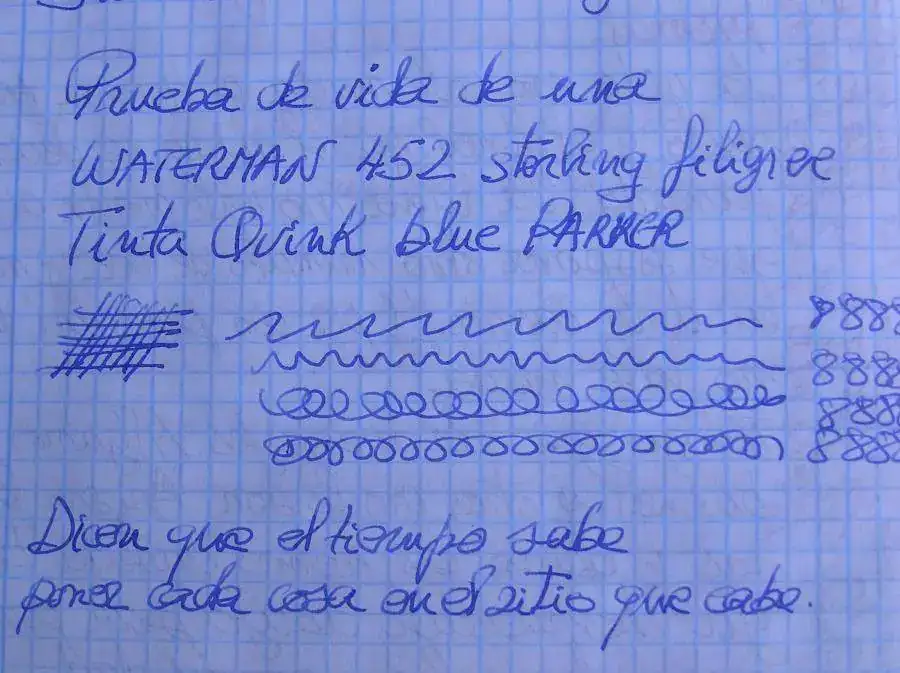 Prueba de vida de una
WATERMAN 452 sterling filigree
Tinta Quink blue PARKER
8888
888
888
8888
Dicen que el tiempo sabe
poner cada cosa en el sitio que cabe.